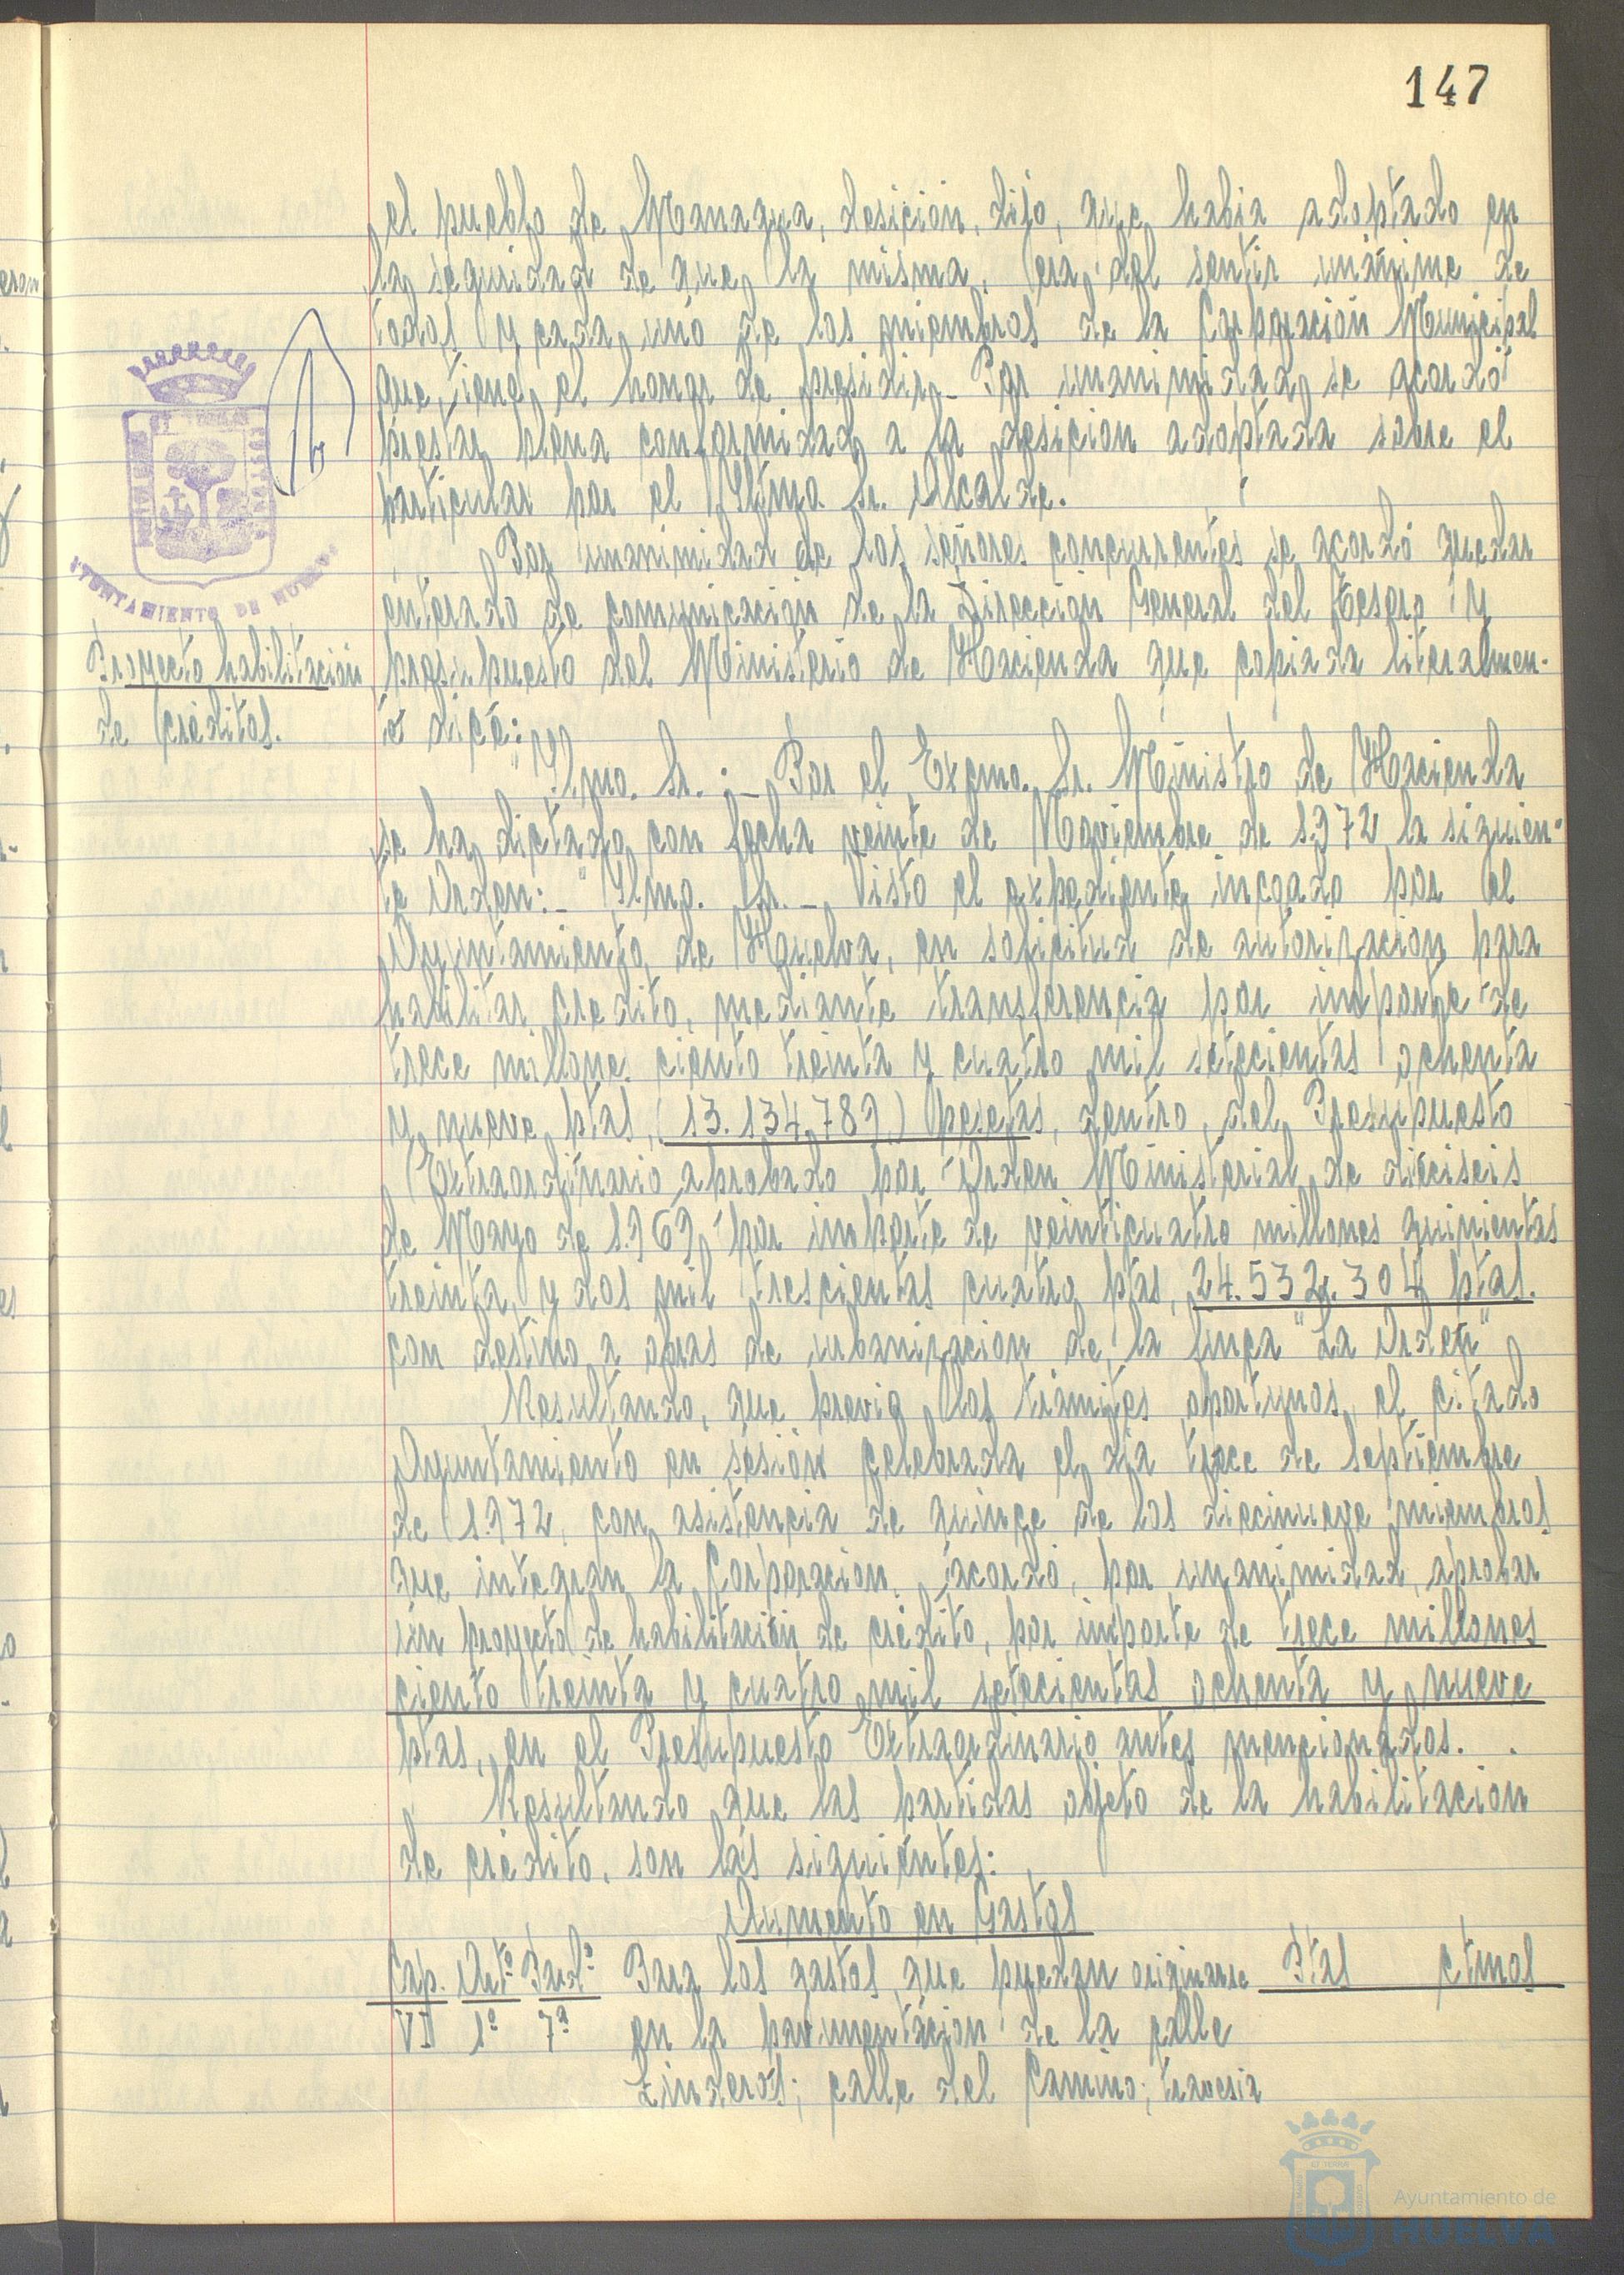 147
el pueblo de Managua, desición, dijo, que habia adoptado en
la seguridad de que la misma, era del sentir unánime de
todos y cada uno de los miembros de la Corporación Municipal
que tiene el honor de presidir.- Por unanimidad se acordó
prestar plena conformidad a la desición adoptada sobre el
particular por el Iltmo. Sr. Alcalde.
Por unanimidad de los señores concurrentes se acordó quedar
enterado de comunicación de la Dirección General del Tesoro y
presupuesto del Ministerio de Hacienda que copiada literalmen-
te dice:
AYUNTAMIENTO DE HUELVA
Proyecto habilitación
de créditos.
"Ilmo. Sr.:- Por el Excmo. Sr. Ministro de Hacienda
se ha dictado con fecha veinte de Noviembre de 1.972 la siguien-
te Orden:- "Ilmo. Sr.- Visto el expediente incoado por el
Ayuntamiento de Huelva, en solicitud de autorización para
habilitar credito, mediante transferencia por importe de
trece millone. ciento treinta y cuatro mil setecientas ochenta
y nueve ptas, (13.134.789,) pesetas, dentro del Presupuesto
Extraordinario aprobado por Orden Ministerial de dieciseis
de Mayo de 1.969, por importe de veinticuatro millones quinientas
treinta y dos mil trescientas cuatro ptas, 24.532.304 ptas.
con destino a obras de urbanizacion de la finca "La Orden"
Resultando, que previo los trámites oportunos, el citado
Ayuntamiento en sesión celebrada el dia trece de Septiembre
de 1.972, con asistencia de quince de los diecinueve miembros
que integran la Corporacion, acordó, por unanimidad, aprobar
un proyecto de habilitación de crédito, por importe de trece millones
ciento treinta y cuatro mil setecientas ochenta y nueve
ptas, en el Presupuesto Extraordinario antes mencionados.
Resultando que las partidas objeto de la habilitación
de crédito, son las siguientes:
Aumento en Gastos
Cap. Artº Partª Para los gastos que puedan originarse Ptas ctmos
VI 1º 7ª en la pavimentación de la calle
Linderos; calle del Camino; travesia
Ayuntamiento de
HUELVA